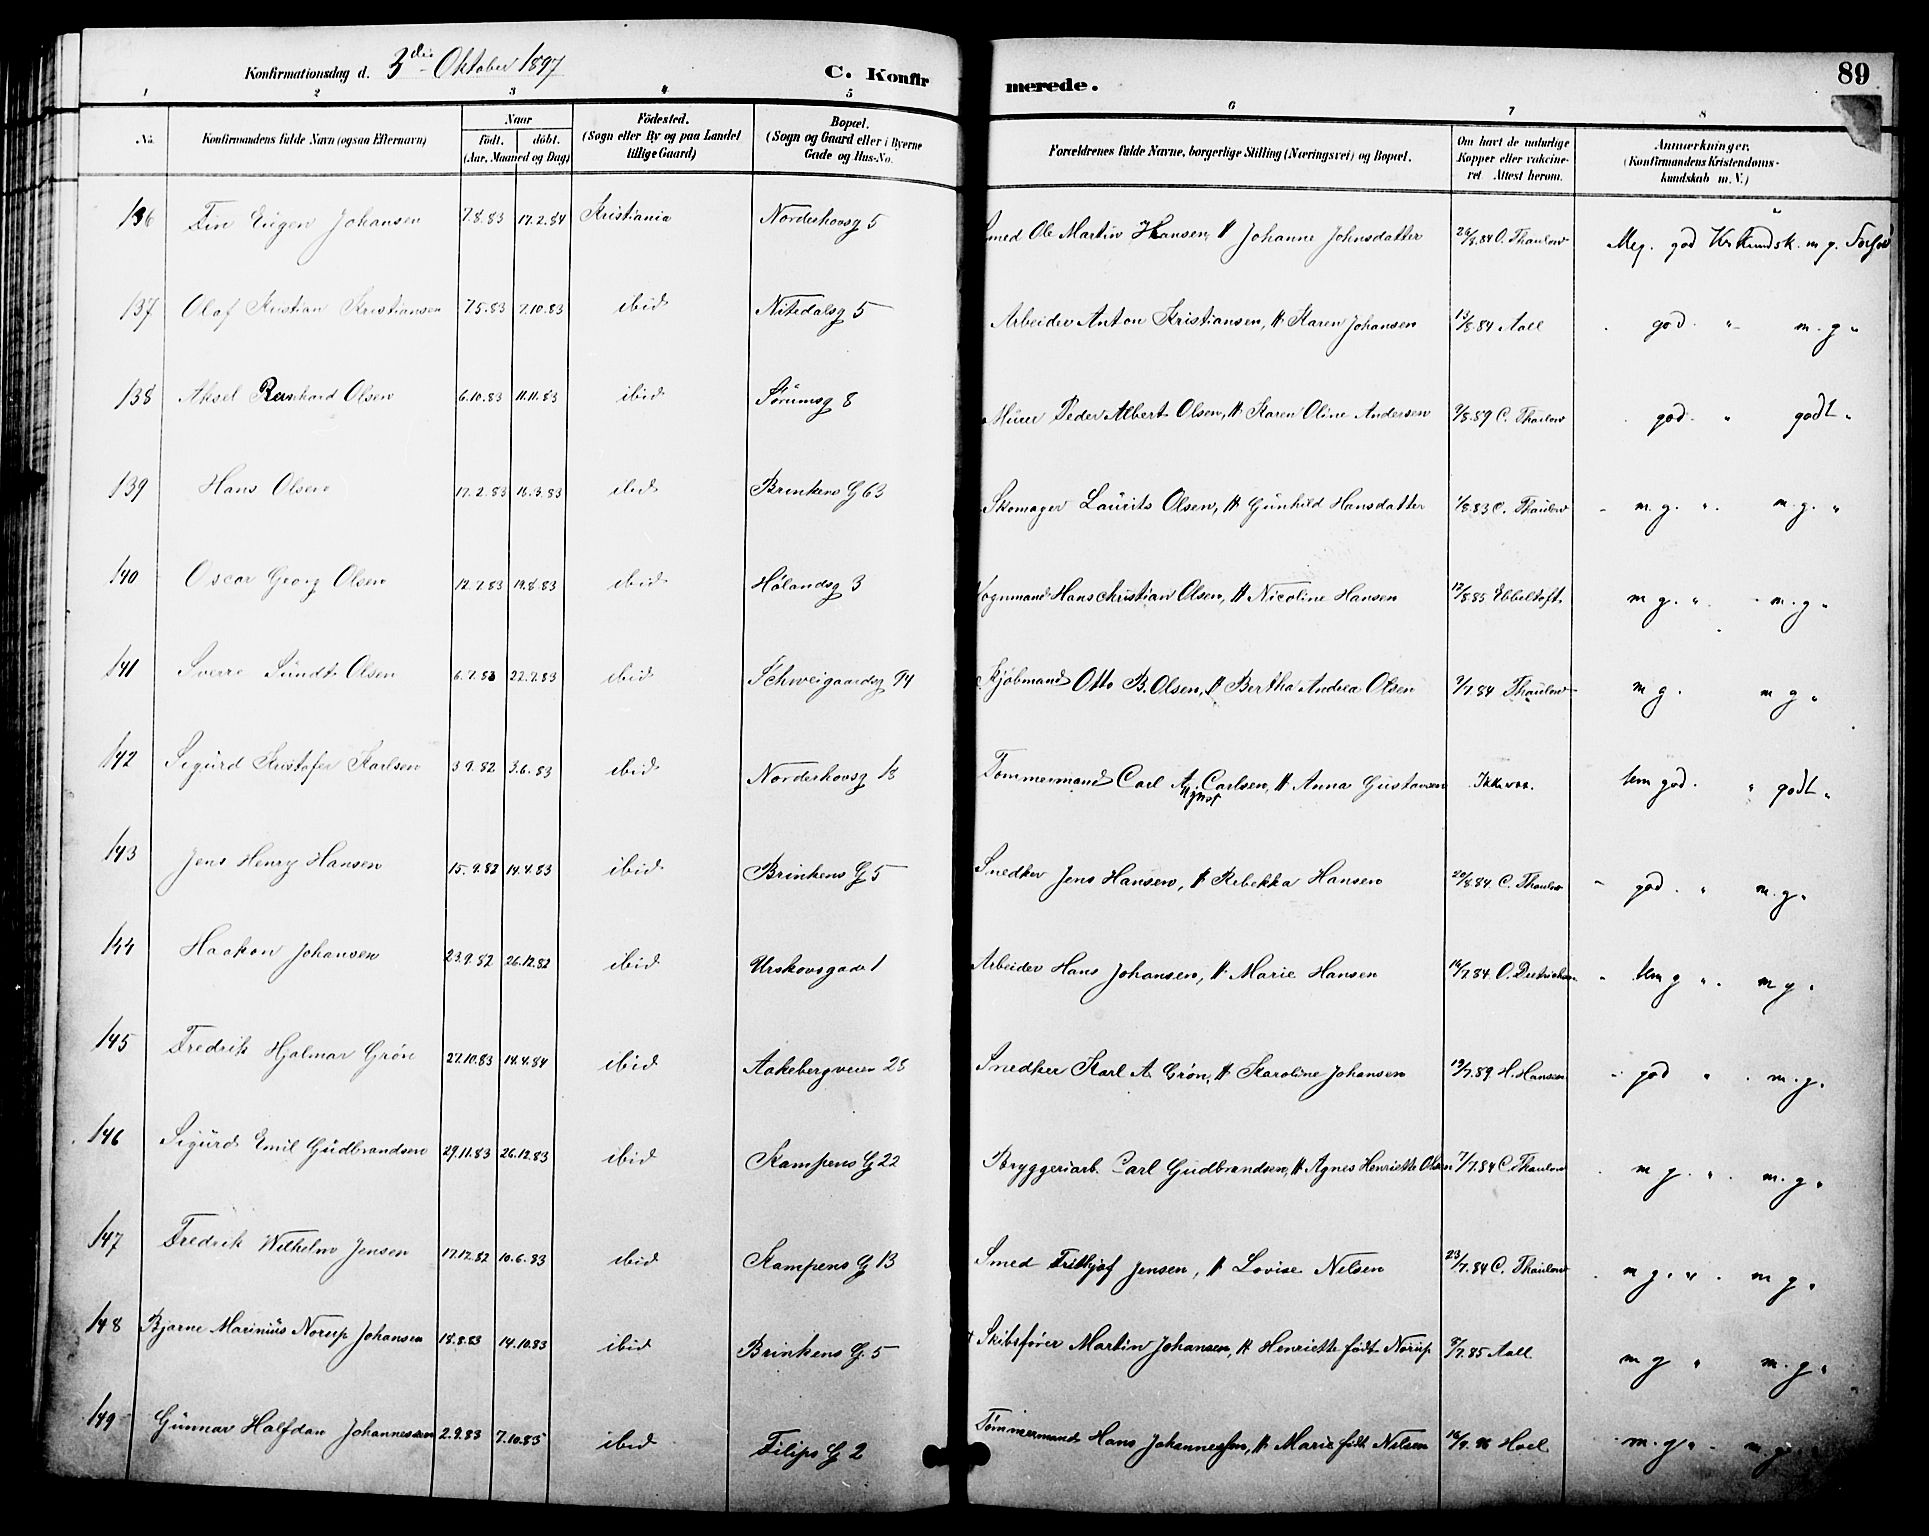 Konfirmationsdag d. 3die Oktober 1897
C. Konfir merede.
89
1 2 3 4 5 6 7 8
No. Konfirmandens fulde Navn (ogsaa Efternavn) Naar födt. döbt. (Aar, Maaned og Dag) Födested. (Sogn eller By og paa Landet tillige Gaard) Bopæl. (Sogn og Gaard eller i Byerne Gade og Hus-No. Forældrenes fulde Navne, borgerlige Stilling (Næringsvei) og Bopæl. Om havt de naturlige Kopper eller vakcineret Attest herom. Anmærkninger. (Konfirmandens Kristendomskundskab m. V.)
136 Fin Eugen Johansen 7.8.83 17.2.84 Kristiania Norderhovsg 5 Smed Ole Martin Hansen, H Johanne Johnsdatter 26/8.84 O. Thaulow Meg. god Kr. Kundsk. m g. Forhold
137 Olaf Kristian Kristiansen 7.5.83 7.10.83 ibid Nitedalsg 5 Arbeider Anton Kristiansen, H Karen Johansen 13/8.84 Aall god " m. g "
138 Aksel Reinhard Olsen 6.10.83 11.11.83 ibid Sörumsg 8 Murer Peder Albert Olsen, H Karen Oline Andersen 9/8.89 C. Thaulow god " godt "
139 Hans Olsen 17.2.83 11.3.83 ibid Brinkens G 63 Skomager Laurits Olsen, H Gunhild Hansdatter 1/8.83 C. Thaulow m. g. " m. g. "
140 Oscar Georg Olsen 12.7.83 19.8.83 ibid Hölandsg 3 Vognmand Hans Christian Olsen, H Nicoline Hansen 12/8.85 Ebbeltoft m g. " m. g "
141 Sverre Sundt Olsen 6.7.83 22.7.83 ibid Schweigaardsg 94 Kjøbmand Otto B. Olsen, H Bertha Andrea Olsen 9/7.84 Thaulow m g. m g "
142 Sigurd Kristofer Karlsen 3.9.82 3.6.83 ibid Norderhovsg 13 Tømmermand Carl August Carlsen, H Anna Gustavsen Ikke vac. tem god. " godt "
143 Jens Henry Hansen 15.9.82 14.4.83 ibid Brinkens G 5 Snedker Jens Hansen, H Rebekka Hansen 20/8.84 C. Thaulow god " m. g "
144 Haakon Johansen 23.9.82 26.12.82 ibid Urskovsgade 1 Arbeider Hans Johansen, H Marie Hansen 16/7.84 O. Dietrichson tem g " m g "
145 Fredrik Hjalmar Grön 27.10.83 14.4.84 ibid Aakebergveien 28 Snedker Karl A. Grön, H Karoline Johansen 19/7.89 H. Hansen god " m. g.
146 Sigurd Emil Gudbrandsen 29.11.83 26.12.83 ibid Kampens G 22 Bryggeriarb. Carl Gudbrandsen, H Agnes Henriette Olsen 7/7.84 C. Thaulow m g. " m. g "
147 Fredrik Wilhelm Jensen 17.12.82 10.6.83 ibid Kampens G 13 Smed Frithjof Jensen, H Lovise Nelsen 23/7.84 C. Thaulow m g. " m g "
148 Bjarne Marinius Norup Johansen 18.8.83 14.10.83 ibid Brinkens G. 5 Skibsfører Martin Johansen, H Henriette født Norup 8/7.85 Aall m g " m. g "
149 Gunnar Halfdan Johannessen 2.9.83 7.10.85 ibid Filips G 2 Tømmermand Hans Johannessen, H Marie født Nelsen 16/9.96 Hoel m. g " m. g